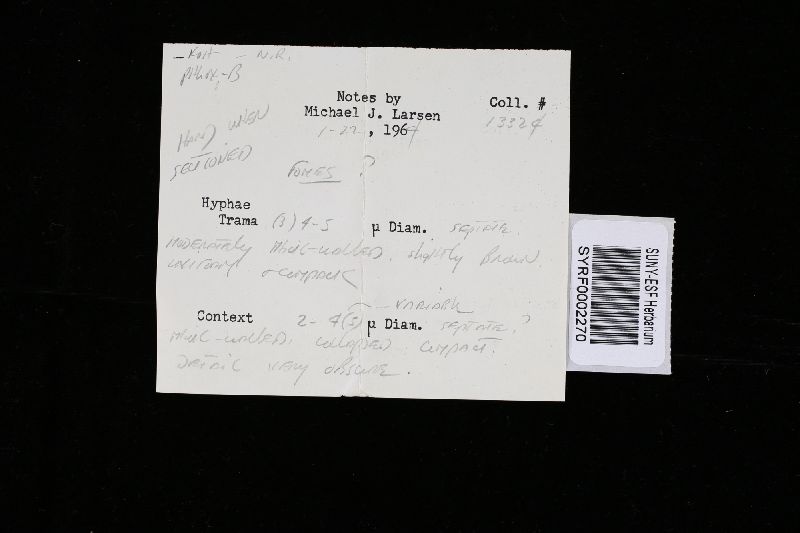 - KOH - N.R.
phlox-B
Notes by
Michael J. Larsen
Coll. #
1-22, 1967
HARD WHEN
SECTIONED
FOMES ?
Hyphae
Trama (3) 4-5 µ Diam. septate.
MODERATELY thick-walled, slightly Brown.
uniform compact
Context 2- 4(5) µ Diam. septate?
VARIABLE
thick-walled, collapsed, compact.
DETAIL very obscure.
SUNY-ESF Herbarium
SYRF0002270